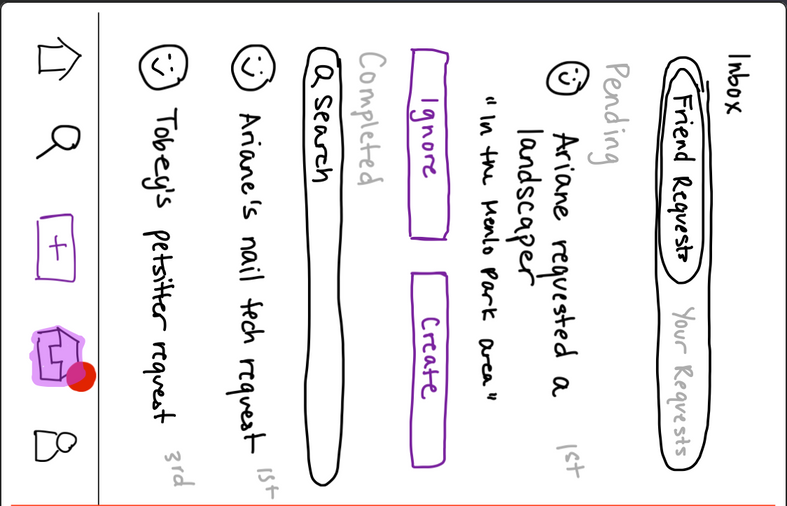 Inbox
Friend Requests Your Requests
Pending
Ariane requested a 1st
landscaper
"In the Menlo Park area"
Ignore Create
Completed
Search
Ariane's nail tech request 1st
Tobey's petsitter request 3rd